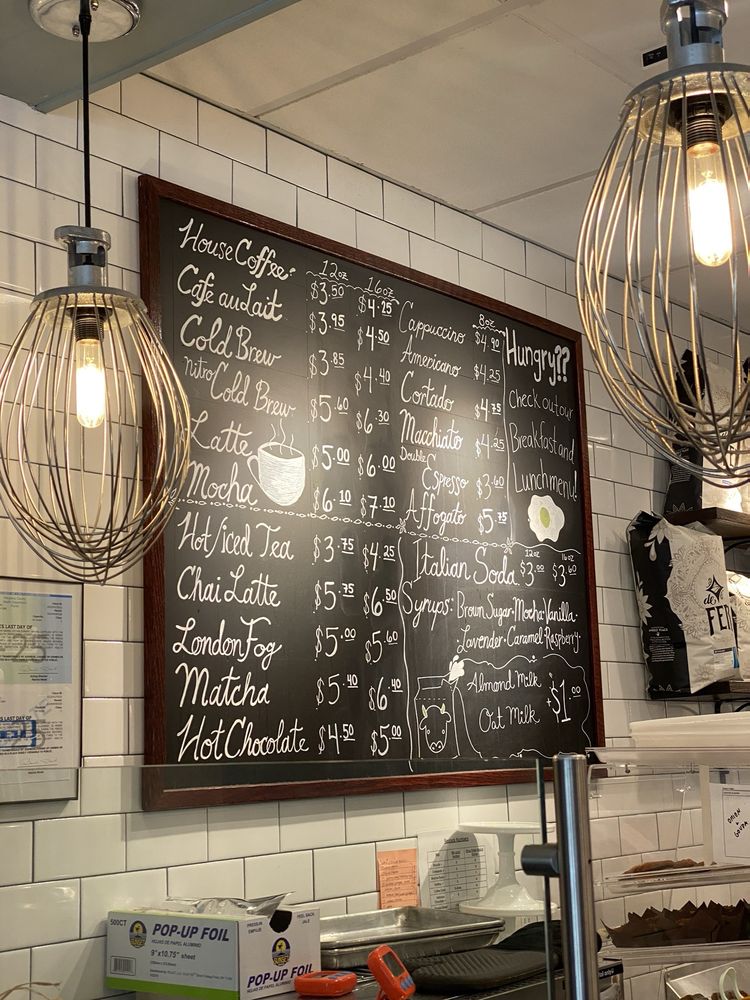 12oz 16oz
House Coffee: $3.50 $4.25
Cafe au Lait $3.95 $4.50
Cold Brew $3.85 $4.40
nitro Cold Brew $5.60 $6.30
Latte $5.00 $6.00
Mocha $6.10 $7.10
Hot/iced Tea $3.75 $4.25
Chai Latte $5.75 $6.50
London Fog $5.00 $5.60
Matcha $5.40 $6.40
Hot Chocolate $4.50 $5.00
8oz
Cappuccino $4.90
Americano $4.25
Cortado $4.75
Macchiato $4.25
Double
Espresso $3.60
Affogato $5.75
Hungry??
check out our
Breakfast and
Lunch menu!
12oz 16oz
Italian Soda $3.00 $3.60
Syrups: Brown Sugar·Mocha·Vanilla·
·Lavender·Caramel·Raspberry·
Almond Milk
Oat Milk
+$1.00
'S LAST DAY OF
'S LAST DAY OF
de
FE
500CT
POP-UP FOIL
HOJAS DE PAPEL ALUMINIO
9"x10.75" sheet
PEEL BACK
POP-UP FOIL